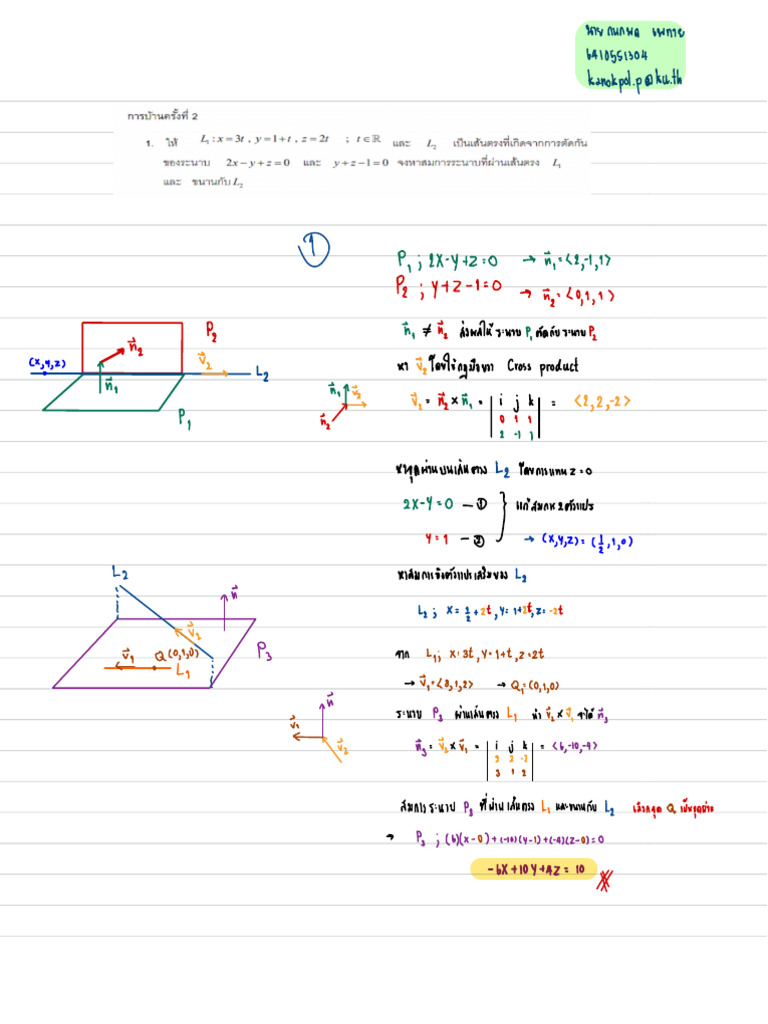 นาย กนกพล แพทาย
6410551304
kanokpol.p@ku.th
การบ้านครั้งที่ 2
1. ให้ L₁ : x = 3t , y = 1+t , z = 2t ; t ∈ ℝ และ L₂ เป็นเส้นตรงที่เกิดจากการตัดกัน
ของระนาบ 2x − y + z = 0 และ y + z − 1 = 0 จงหาสมการระนาบที่ผ่านเส้นตรง L₁
และ ขนานกับ L₂
①
P₁ ; 2x-y+z=0 → n⃗₁=<2,-1,1>
P₂ ; y+z-1=0 → n⃗₂=<0,1,1>
n⃗₁ ≠ n⃗₂ ส่งผลให้ ระนาบ P₁ ตัดกับระนาบ P₂
หา v⃗₂ โดยใช้กฎมือขวา Cross product
v⃗₂ = n⃗₂ × n⃗₁ = | i j k | = <2,2,-2>
0 1 1
2 -1 1
P₂
n⃗₂
(x,y,z)
v⃗₂
L₂
n⃗₁
P₁
n⃗₁
v⃗₂
n⃗₂
หาจุดผ่านบนเส้นตรง L₂ โดยการแทน z=0
2x-y=0 — ①
แก้สมการ 2 ตัวแปร
y=1 — ②
→ (x,y,z)=(1/2,1,0)
หาสมการอิงตัวแปรเสริมของ L₂
L₂ ; x = 1/2+2t, y=1+2t, z=-2t
จาก L₁ ; x=3t, y=1+t, z=2t
→ v⃗₁=<3,1,2> → Q₁=(0,1,0)
L₂
n⃗
v⃗₂
P₃
v⃗₁ Q(0,1,0)
L₁
n⃗
v⃗₁
v⃗₂
ระนาบ P₃ ผ่านเส้นตรง L₁ นำ v⃗₂ × v⃗₁ จะได้ n⃗₃
n⃗₃ = v⃗₂ × v⃗₁ = | i j k | = <6,-10,-4>
2 2 -2
3 1 2
สมการระนาบ P₃ ที่ผ่านเส้นตรง L₁ และขนานกับ L₂ เลือกจุด Q เป็นจุดผ่าน
→ P₃ ; (6)(x-0)+(-10)(y-1)+(-4)(z-0)=0
-6x+10y+4z=10